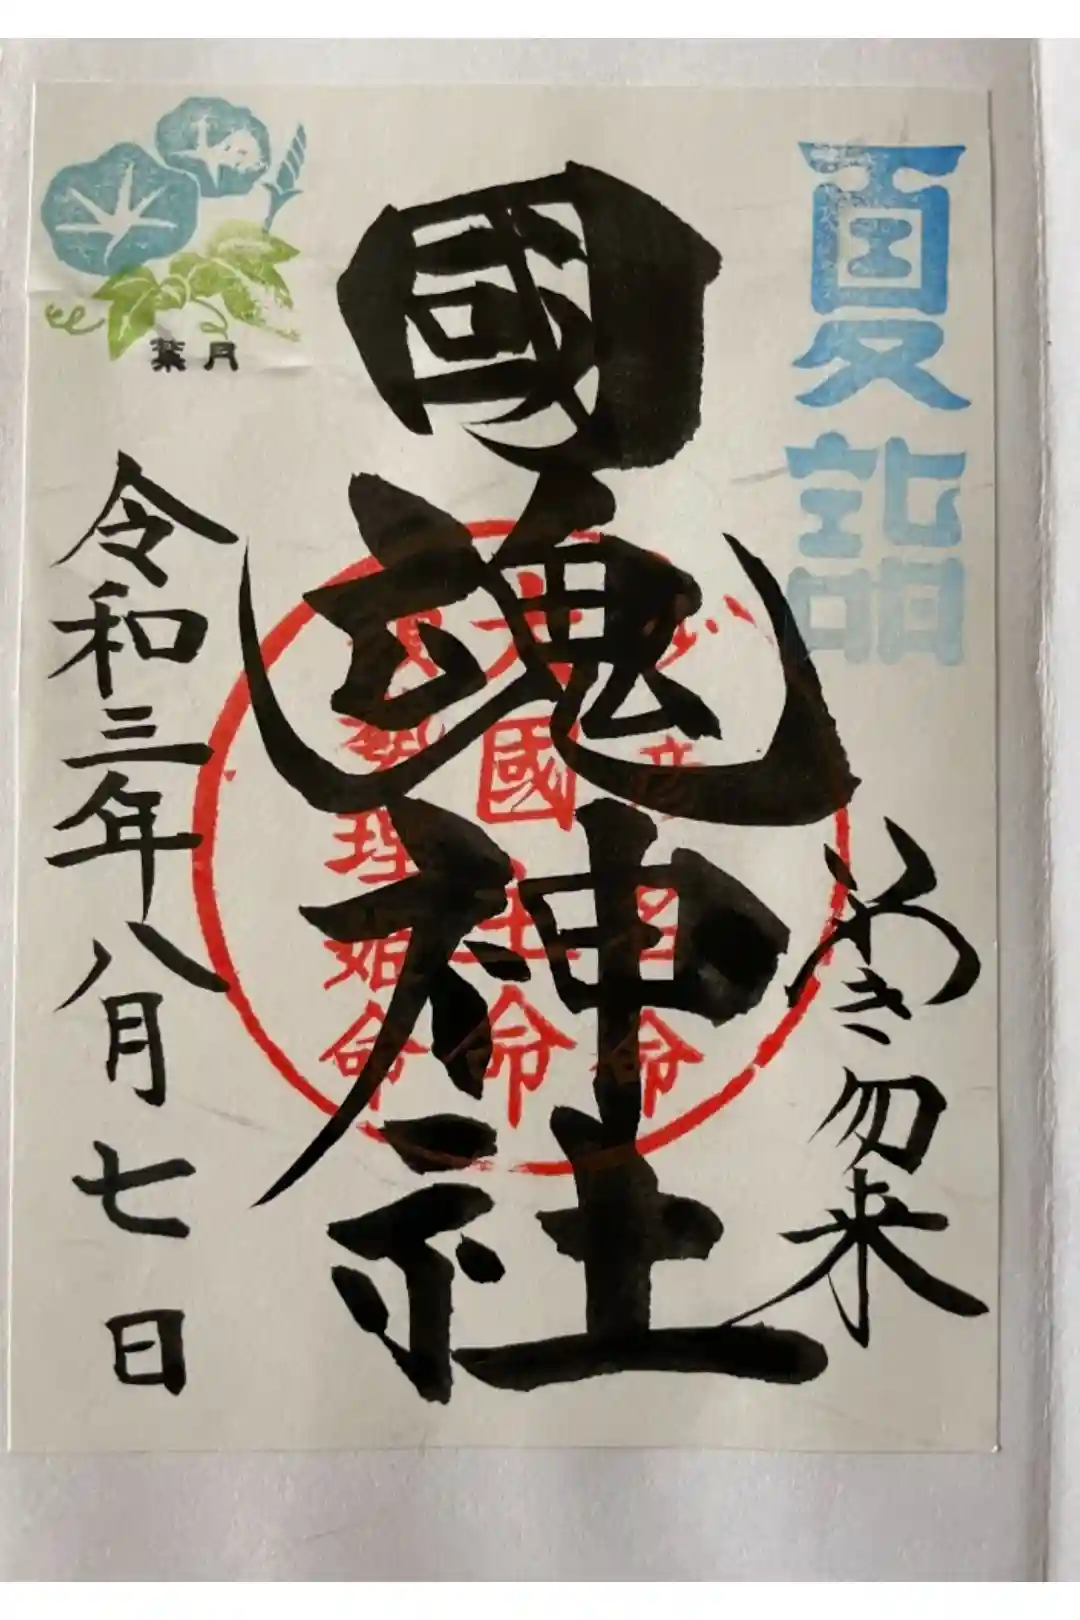 夏詣
いわき勿来
國魂神社
大國主命
須勢理姫命
葉月
令和三年八月七日